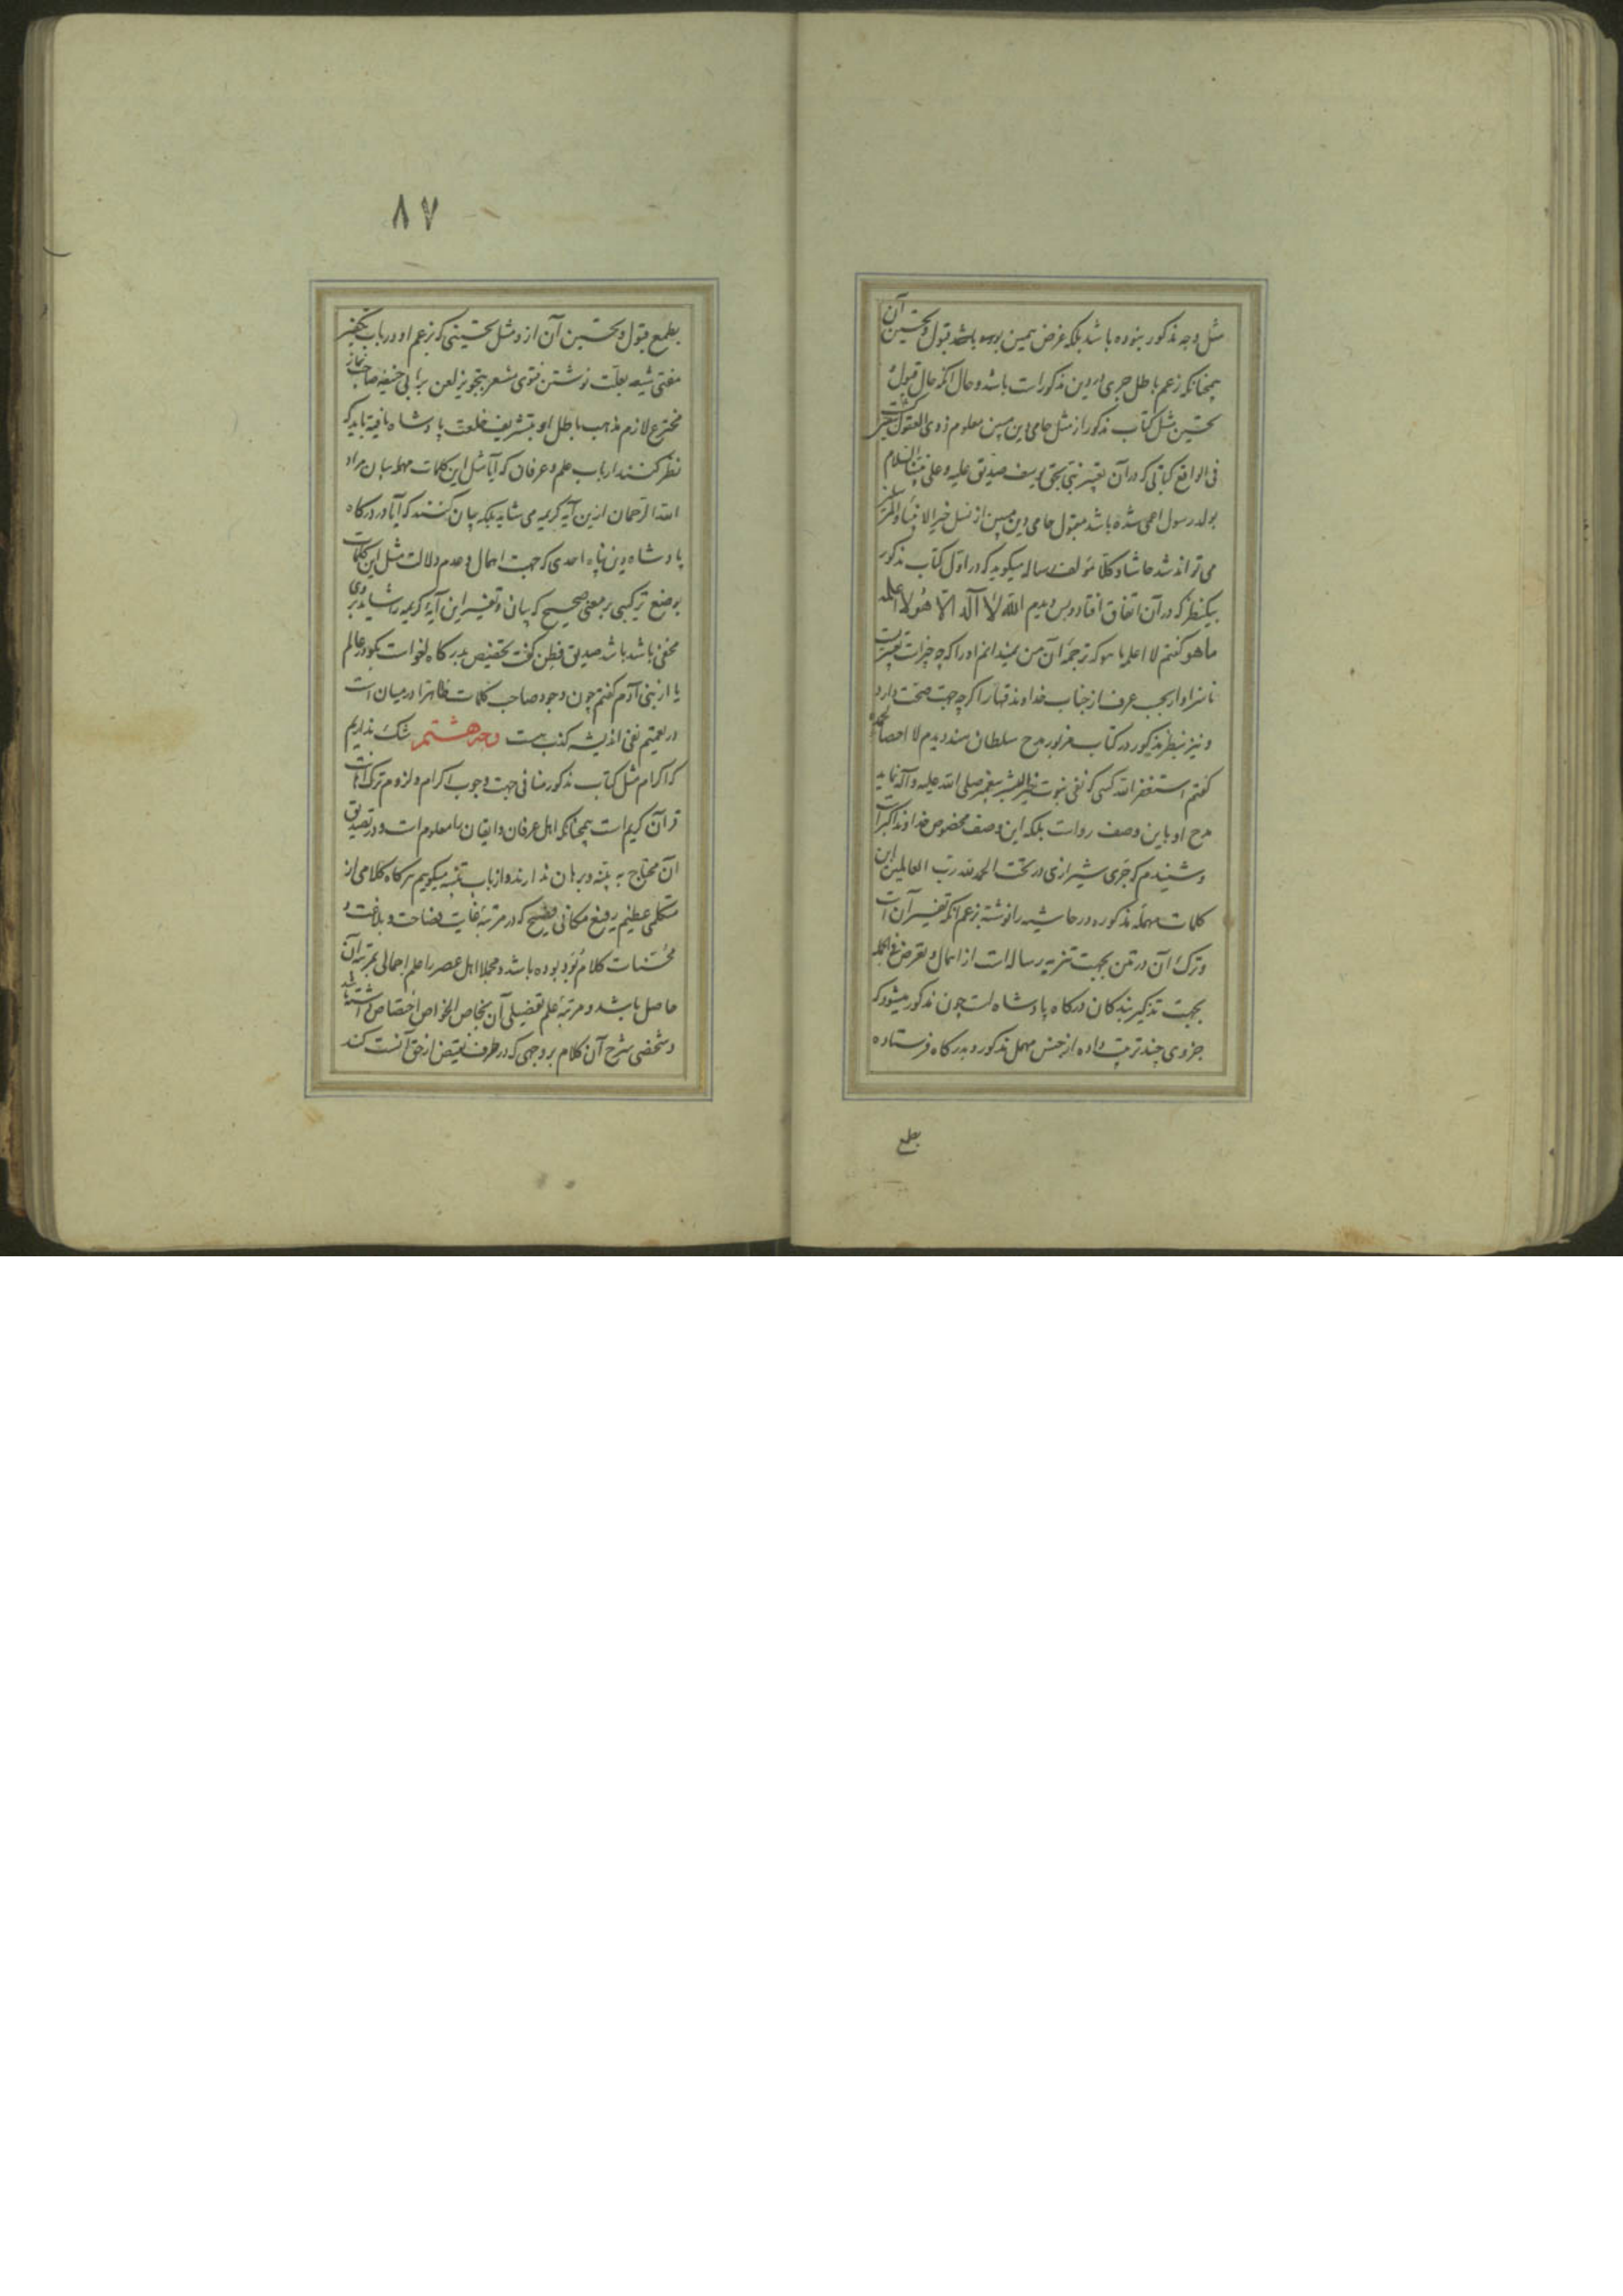 مثل وجه مذکور نبوده باشد بلکه غرض همین بوده باشد قبول و تحسین آن
همچنانکه زعم باطل جری در دین مذکورات باشد و حال آنکه حال قبول و
تحسین مثل کتاب مذکور از مثل حامی دین مبین معلوم ذوی العقول است
فی الواقع کتابی که در آن تعبیر نبی بحق یوسف صدیق علیه و علی نبینا السلام
بولد رسول امی شده باشد مقبول حامی دین مبین از نسل خیر الانبیاء والمرسلین
می تواند شد حاشا و کلا مؤلف رساله میگوید که در اول کتاب مذکور
بیکنظر که در آن اتفاق افتاد و بس دیدم الله لا اله الا هو لا اعلمه
ما هو گفتم لا اعلم ما هو که ترجمه آن من نمیدانم او را که چه چیز است تعبیریست
ناسزاوار بحسب عرف از جناب خداوند قهار اگرچه جهت صحت دارد
و نیز بنظر مذکور در کتاب مزبور مدح سلطان سند دیدم لا احصا
گفتم استغفر الله کسی که نفی نبوت پیغمبر صلی الله علیه و آله نماید
مدح او باین وصف رواست بلکه این وصف مخصوص خداوند اکبر است
و شنیدم که جری شیرازی در تحت الحمد لله رب العالمین این
کلمات مهمله مذکوره در حاشیه را نوشته بزعم آنکه تفسیر آن است
و ترک آن در متن بجهت تنزیه رساله است از اهمال و تعرض فی الجمله
بجهت تذکیر بندکان درکاه پادشاه است چون مذکور میشود که
جزوی چند ترتیب داده از جنس مهمل مذکور و بدرکاه فرستاده
بطمع
۸۷
بطمع قبول و تحسین آن از و مثل تحسینی که بزعم او در باب تکفیر
مفتی شیعه بعلت نوشتن فتوی مشعر بتجویز لعن برابی حنیفه صاحب نماز
مخترع لازم مذهب باطل او بتشریف خلعت پادشاه یافته باید که
نظر کنند ارباب علم و عرفان که آیا مثل این کلمات مهمله بیان مراد
الله الرحمان ازین آیه کریمه می شاید بلکه بیان کنند که آیا در درکاه
پادشاه دین پناه احدی که جهت اهمال و عدم دلالت مثل این کلمات
بوضع ترکیبی بر معنی صحیح که بیان و تفسیر این آیه کریمه را شاید بروی
مخفی باشد باشد صدیق فطن گفت تخصیص بدرکاه لغو است بگو در عالم
یا از بنی آدم گفتم چون وجود صاحب کلمات ظاهرا در میان است
در تعمیم نفی اندیشه کذب هست وجه هشتم شک نداریم
که اکرام مثل کتاب مذکور منافی جهت وجوب اکرام و لزوم ترک اهانت
قرآن کریم است همچنانکه اهل عرفان و ایقان را معلوم است و در تصدیق
آن محتاج به بینه و برهان ندارند و از باب تنبیه میگویم هر گاه کلامی از
متکلمی عظیم رفیع مکانی فصیح که در مرتبه غایت فصاحت و بلاغت و
محسنات کلام بود بوده باشد و مجملا اهل عصر را علم اجمالی بمرتبه آن
حاصل باشد و مرتبه علم تفصیلی آن بخاص الخواص اختصاص داشته باشد
و شخصی شرح آن کلام بر وجهی که در طرف نقیض از حق آنست کند